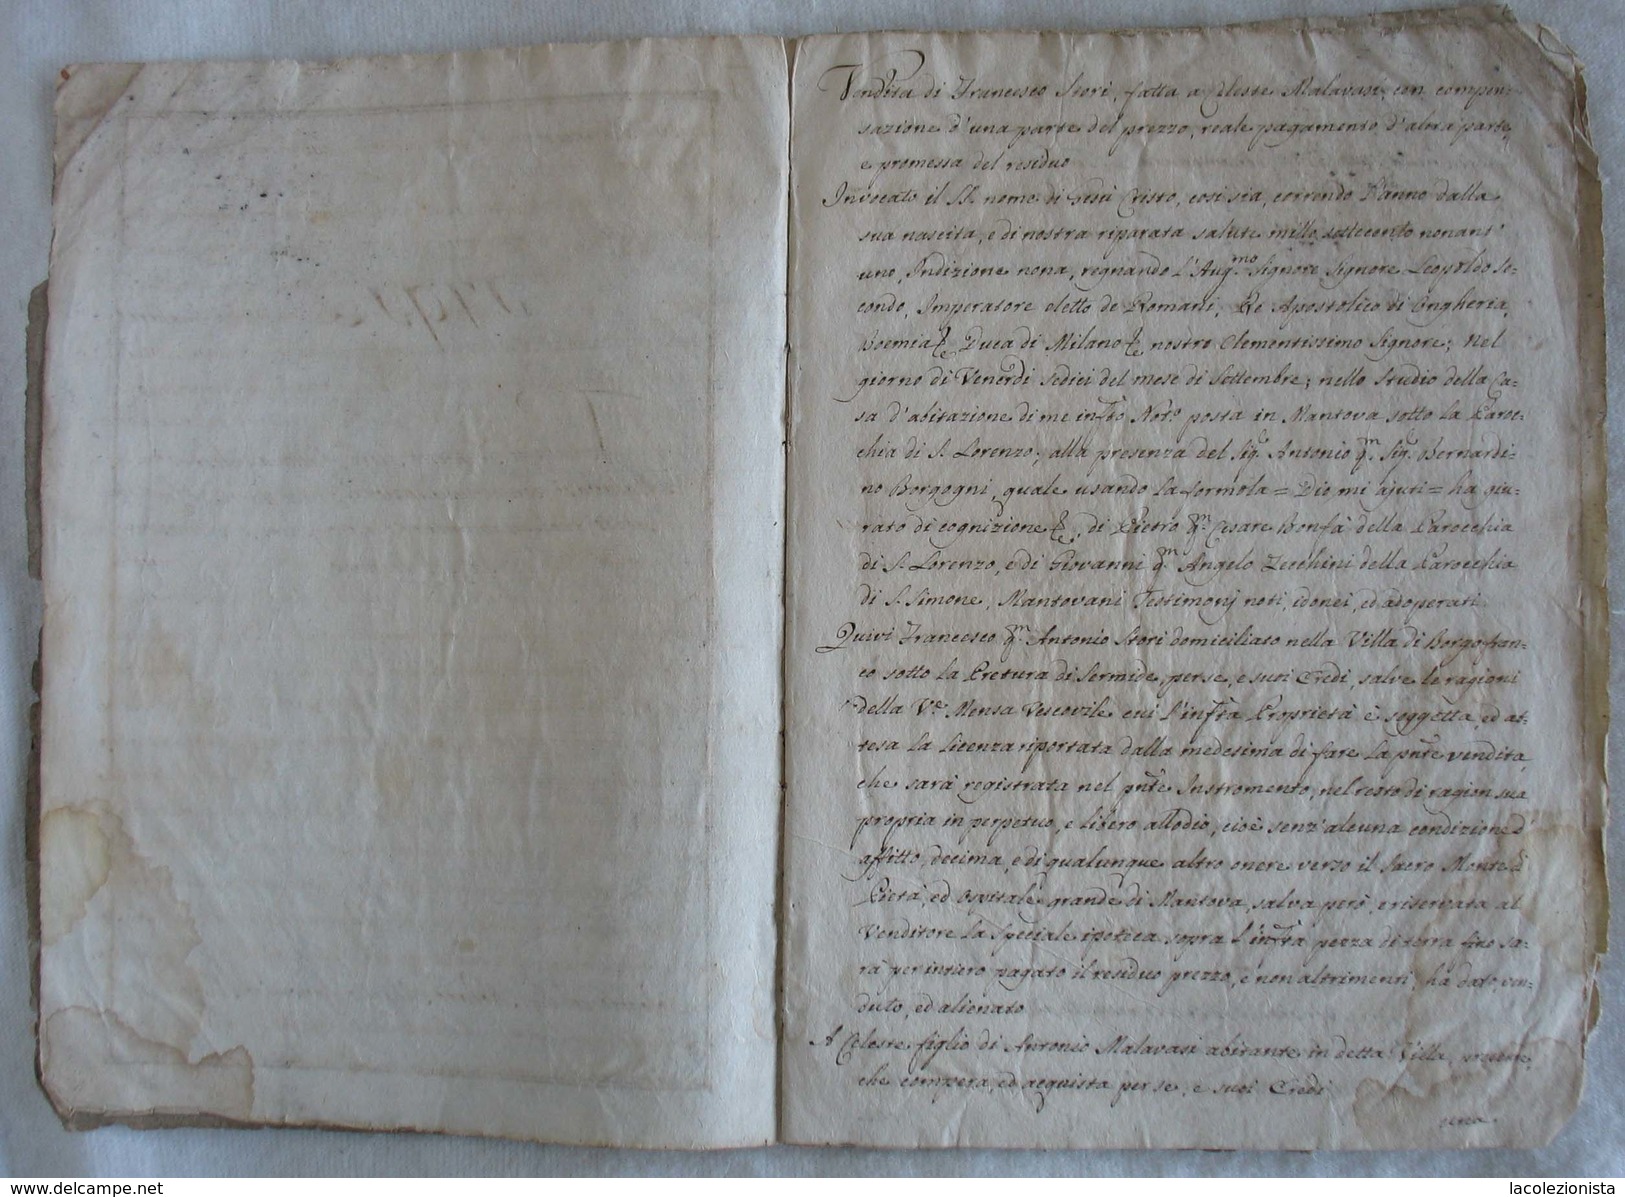 Vendita di Francesco Stori, fatta a Celeste Malavasi, con compen:
sazione d'una parte del prezzo, reale pagamento d'altra parte,
e promessa del residuo
Invocato il SS. nome di Gesù Cristo, così sia, correndo l'anno dalla
sua nascita, e di nostra riparata salute mille settecento nonant'
uno, Indizione nona, regnando l'Aug.mo Signore Signore Leopoldo se=
condo, Imperatore eletto de Romani, Re Apostolico di Ongheria,
Boemia &c Duca di Milano &c nostro Clementissimo Signore; Nel
giorno di Venerdi sedici del mese di Settembre; nello Studio della Ca=
sa d'abitazione di me infto Noto posta in Mantova sotto la Paroc=
chia di S. Lorenzo; alla presenza del Sigr. Antonio qm. Sigr. Bernardi=
no Borgogni, quale usando la formola = Dio mi ajuti = ha giu=
rato di cognizione &c, di Pietro qm. Cesare Bonfà della Parocchia
di S. Lorenzo, e di Giovanni qm. Angelo Zecchini della Parocchia
di S. Simone, Mantovani Testimonj noti, idonei, ed adoperati
Quivi Francesco qm. Antonio Stori domiciliato nella Villa di Borgofran=
co sotto la Pretura di Sermide, per se, e suoi Eredi, salve le ragioni
della Ve. Mensa Vescovile cui l'infta Proprietà è soggetta, ed at=
tesa la licenza riportata dalla medesima di fare la pnte vendita,
che sarà registrata nel pnte Instromento, nel resto di ragion sua
propria in perpetuo, e libero allodio, cioè senz'alcuna condizione d'
affitto, decima, e di qualunque altro onere verso il Sacro Monte di
Pietà, ed Ospitale grande di Mantova, salva però, e riservata al
Venditore la Speciale ipoteca sopra l'infta pezza di terra fino sa=
rà per intiero pagato il residuo prezzo, e non altrimenti, ha dato, ven=
duto, ed alienato
A Celeste figlio di Antonio Malavasi abitante in detta Villa, presente,
che compera, ed acquista per se, e suoi Eredi
www.delcampe.net
lacolezionista